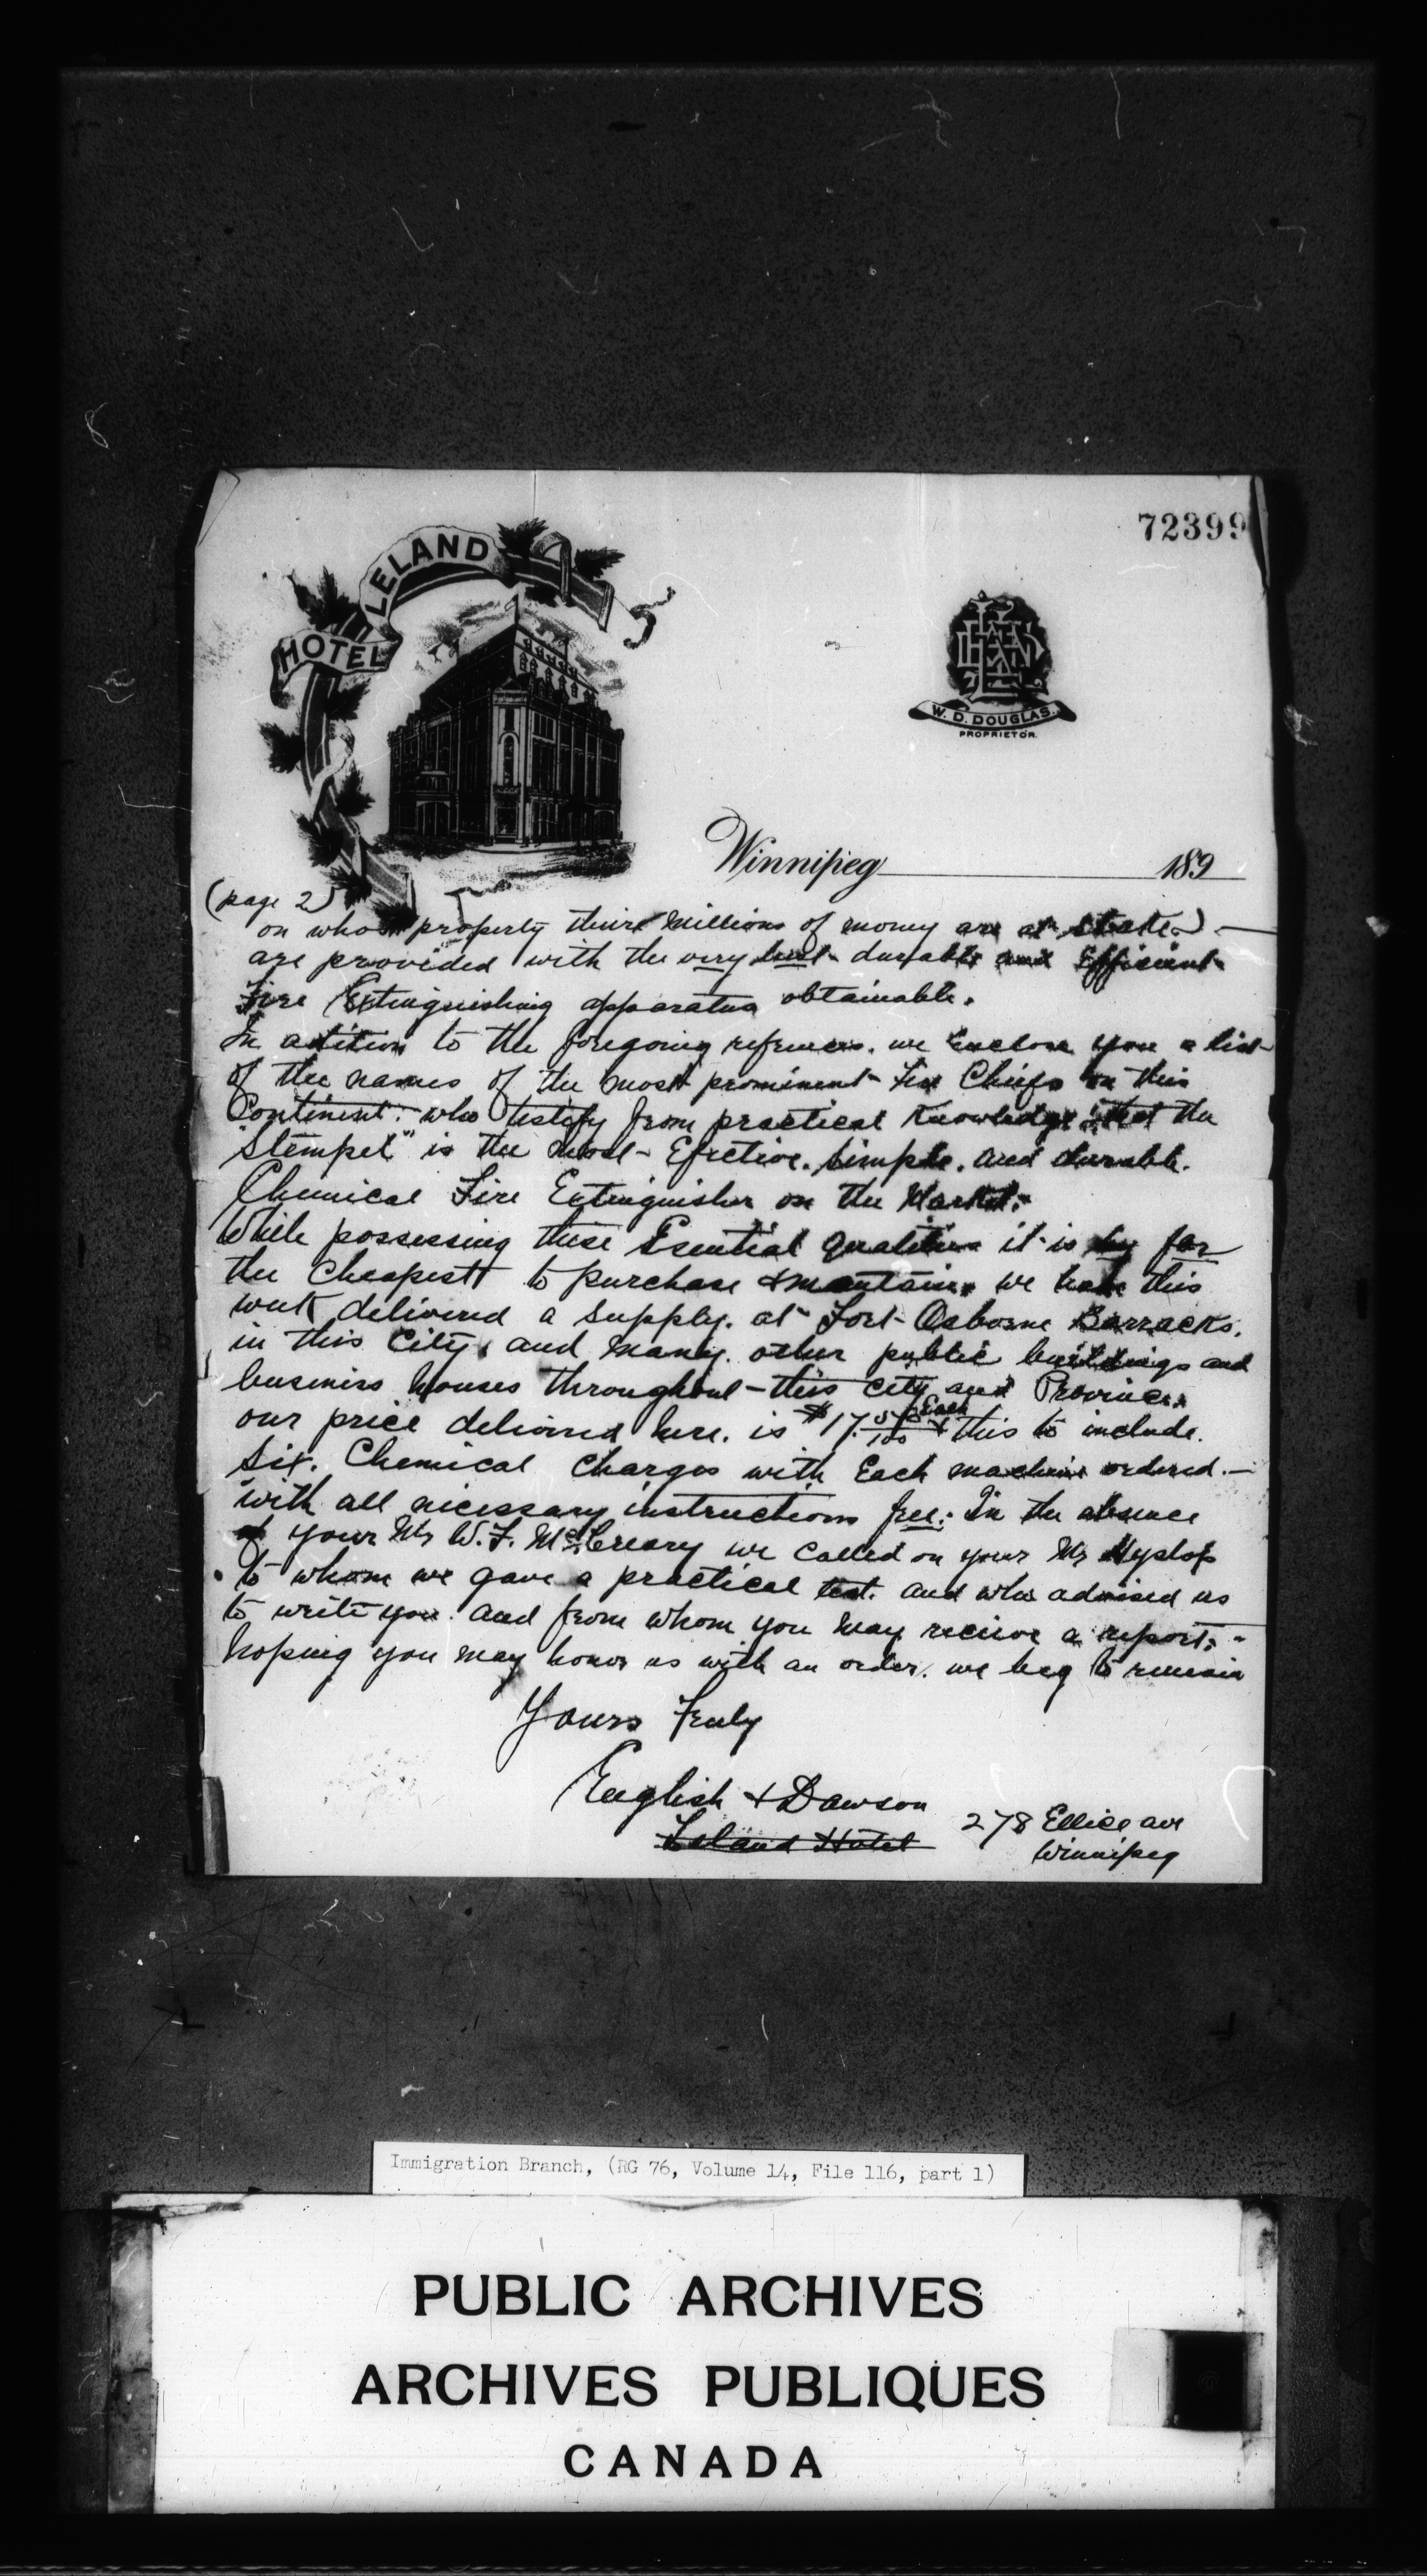 72399
HOTEL LELAND
W. D. DOUGLAS.
PROPRIETOR.
Winnipeg 189
(page 2)
on whose property there millions of money are at stake) —
are provided with the very best durable and Efficient
Fire Extinguishing apparatus obtainable.
In adition to the foregoing refrences. we Enclose you a list
of the names of the most prominent Fire Chiefs on this
Continent. who testify from practical Knowledge that the
"Stempel" is the most Efective. Simple. and durable.
Chemical Fire Extinguisher on the Market.
While possessing these Esential qualities it is by far
the Cheapest to purchase & mantain. we have this
week delivered a supply. at Fort Osborne Barracks.
in this City, and many. other public buildings and
business houses throughout this City and Province.
our price delivered here. is $17.50/100 Each & this to include.
Six. Chemical Charges with Each machine ordered. —
with all nicessary instructions free. In the absence
of your Mr W. F. McCreary we Called on your Mr Hyslop
to whom we gave a practical test. and who advised us
to write you. and from whom you may recieve a report. -
hoping you may honor us with an order. we beg to remain
Yours Truly
English & Dawson
Leland Hotel
278 Ellice ave
Winnipeg
Immigration Branch, (RG 76, Volume 14, File 116, part 1)
PUBLIC ARCHIVES
ARCHIVES PUBLIQUES
CANADA